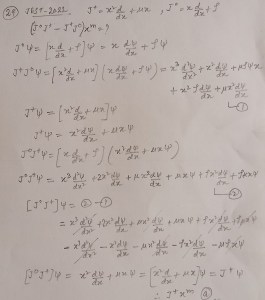 (29) JEST-2021. J⁺ = x² d/dx + μx, J⁰ = x d/dx + ρ
(J⁰J⁺ - J⁺J⁰) xᵐ = ?
J⁰ψ = [x d/dx + ρ]ψ = x dψ/dx + ρψ
J⁺J⁰ψ = [x² d/dx + μx] (x dψ/dx + ρψ) = x³ d²ψ/dx² + x² dψ/dx + μρψx
+ x²ρ dψ/dx + μx² dψ/dx
①
J⁺ψ = [x² d/dx + μx]ψ
J⁺ψ = x² dψ/dx + μxψ
J⁰J⁺ψ = [x d/dx + ρ] (x² dψ/dx + μxψ)
J⁰J⁺ψ = x³ d²ψ/dx² + 2x² dψ/dx + μx² dψ/dx + μxψ + ρx² dψ/dx + ρμxψ
②
[J⁰J⁺]ψ = ② - ①
= x³ d²ψ/dx² + 2x² dψ/dx + μx² dψ/dx + μxψ + ρx² dψ/dx + ρμxψ
- x³ d²ψ/dx² - x² dψ/dx - μx² dψ/dx - ρx² dψ/dx - μρxψ
[J⁰J⁺]ψ = x² dψ/dx + μxψ = [x² d/dx + μx]ψ = J⁺ψ
∴ J⁺xᵐ (a)